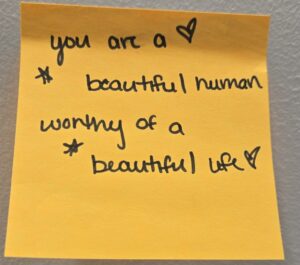 you are a ♡
* beautiful human
worthy of a
* beautiful life ♡